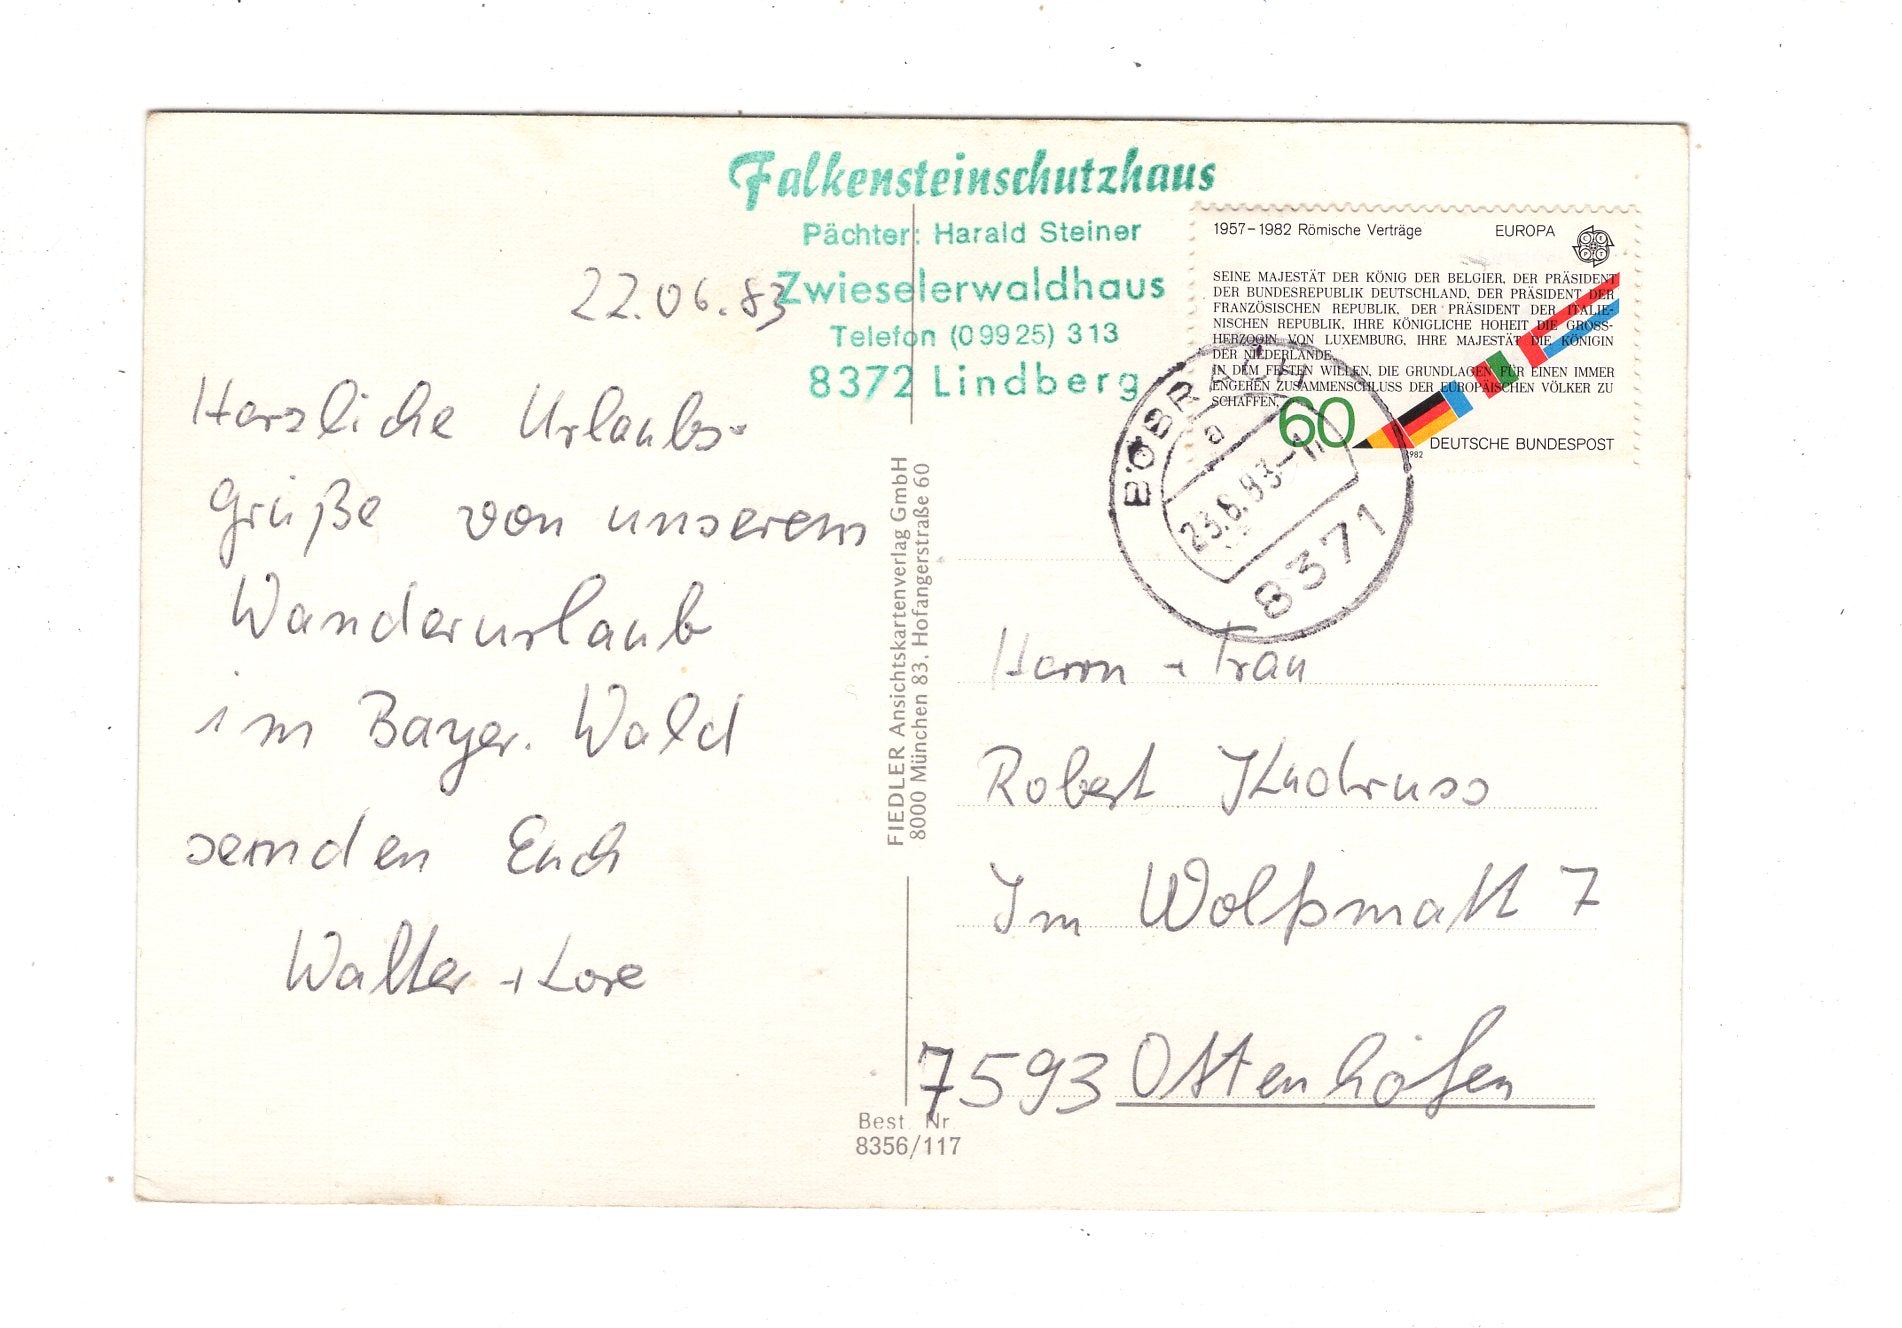 Falkensteinschutzhaus
Pächter: Harald Steiner
Zwieselerwaldhaus
Telefon (09925) 313
8372 Lindberg
22.06.83
Herzliche Urlaubs-
grüße von unserem
Wanderurlaub
im Bayer. Wald
senden Euch
Walter + Lore
FIEDLER Ansichtskartenverlag GmbH
8000 München 83, Hofangerstraße 60
Best. Nr.
8356/117
1957-1982 Römische Verträge EUROPA
SEINE MAJESTÄT DER KÖNIG DER BELGIER, DER PRÄSIDENT
DER BUNDESREPUBLIK DEUTSCHLAND, DER PRÄSIDENT DER
FRANZÖSISCHEN REPUBLIK, DER PRÄSIDENT DER ITALIE-
NISCHEN REPUBLIK, IHRE KÖNIGLICHE HOHEIT DIE GROSS-
HERZOGIN VON LUXEMBURG, IHRE MAJESTÄT DIE KÖNIGIN
DER NIEDERLANDE,
IN DEM FESTEN WILLEN, DIE GRUNDLAGEN FÜR EINEN IMMER
ENGEREN ZUSAMMENSCHLUSS DER EUROPÄISCHEN VÖLKER ZU
SCHAFFEN,
60
1982
DEUTSCHE BUNDESPOST
BÖBRACH
a
23.6.83-11
8371
Herrn + Frau
Robert
Im Wolfsmatt 7
7593 Ottenhöfen